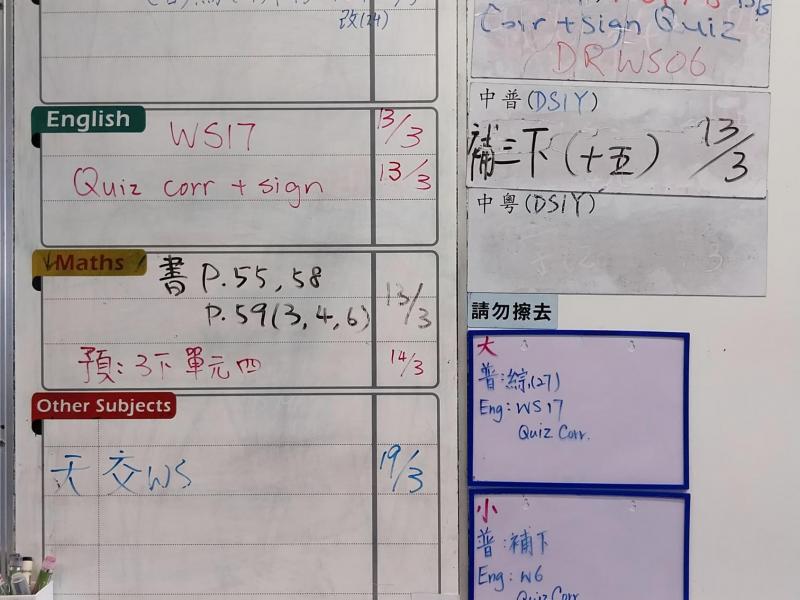 改(24)
English
WS17 13/3
Quiz corr + sign 13/3
Maths
書 P.55, 58
P.59(3, 4, 6) 13/3
預: 3下 單元四 14/3
Other Subjects
天 交 WS 19/3
Corr + sign Quiz
DRWS06
中普(DS1Y)
補三下(十五) 13/3
中粵(DS1Y)
請勿擦去
大
普:綜(27)
Eng: WS17
Quiz Corr.
小
普:補下
Eng: W6
Quiz Corr